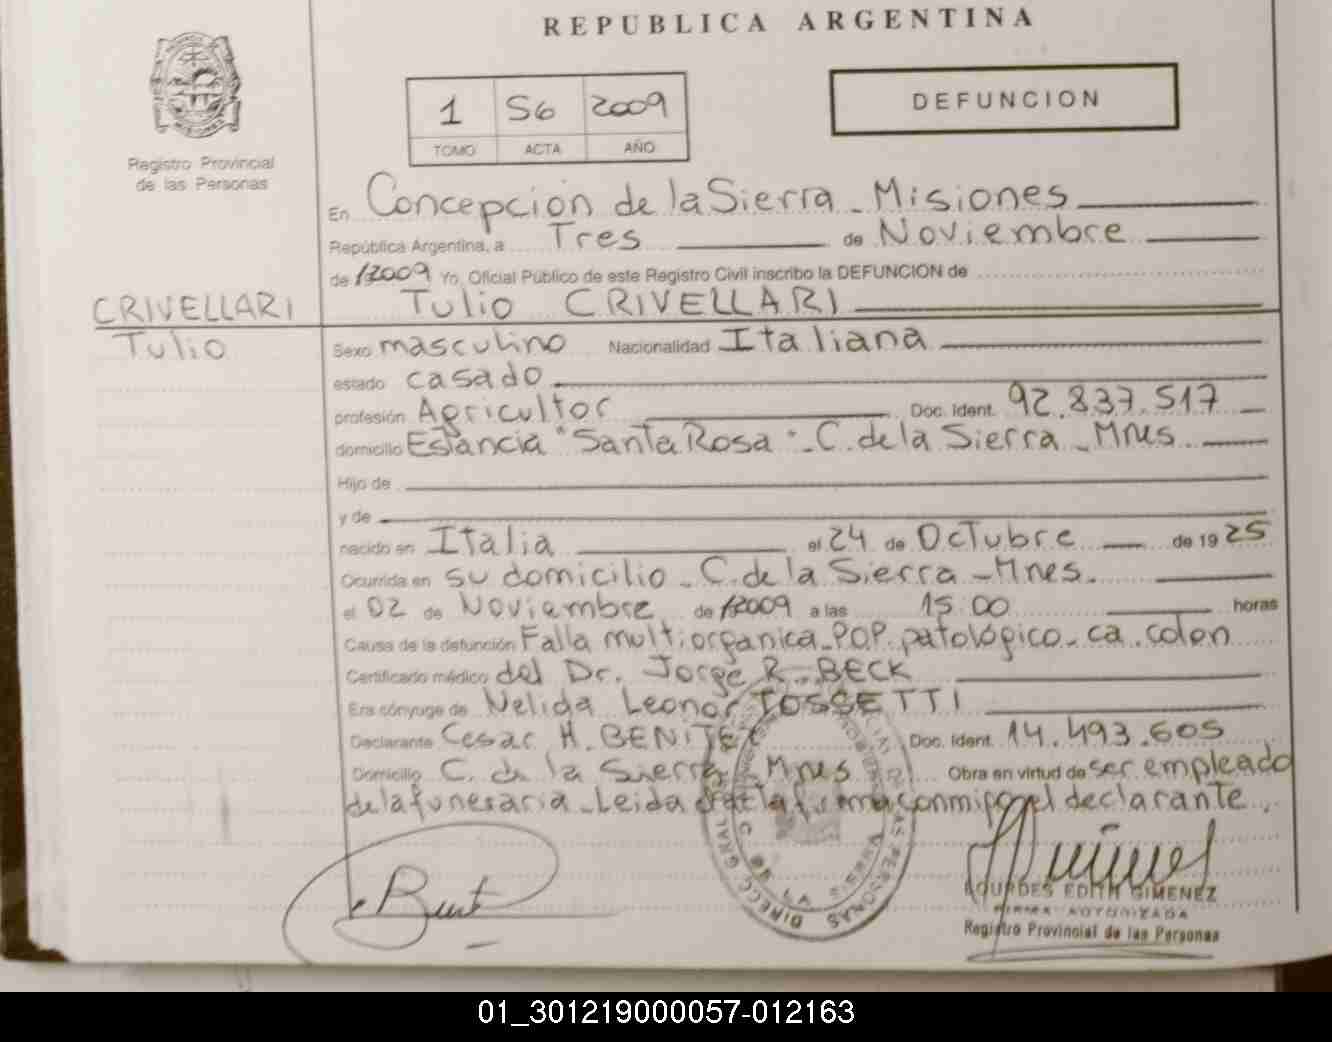 REPUBLICA ARGENTINA
1 56 2009
TOMO ACTA AÑO
DEFUNCION
Registro Provincial
de las Personas
En Concepción de la Sierra - Misiones
República Argentina, a Tres de Noviembre
de 2009 Yo, Oficial Público de este Registro Civil inscribo la DEFUNCION de
CRIVELLARI
Tulio CRIVELLARI
Tulio
Sexo masculino Nacionalidad Italiana
estado casado
profesión Agricultor Doc. Ident. 92.837.517
domicilio Estancia "Santa Rosa" - C. de la Sierra - Mnes
Hijo de
y de
nacido en Italia el 24 de Octubre de 1925
Ocurrida en su domicilio - C. de la Sierra - Mnes.
el 02 de Noviembre de 2009 a las 15:00 horas
Causa de la defunción Falla multiorganica - P.O.P. patológico - ca. colon
Certificado médico del Dr. Jorge R. BECK
Era cónyuge de Nelida Leonor TOSSETTI
Declarante Cesar H. BENITEZ Doc. Ident. 14.493.605
Domicilio C. de la Sierra Mnes Obra en virtud de ser empleado
de la funeraria - Leida el acta firma conmigo el declarante.
LOURDES EDITH GIMENEZ
FIRMA AUTORIZADA
Registro Provincial de las Personas
01_301219000057-012163